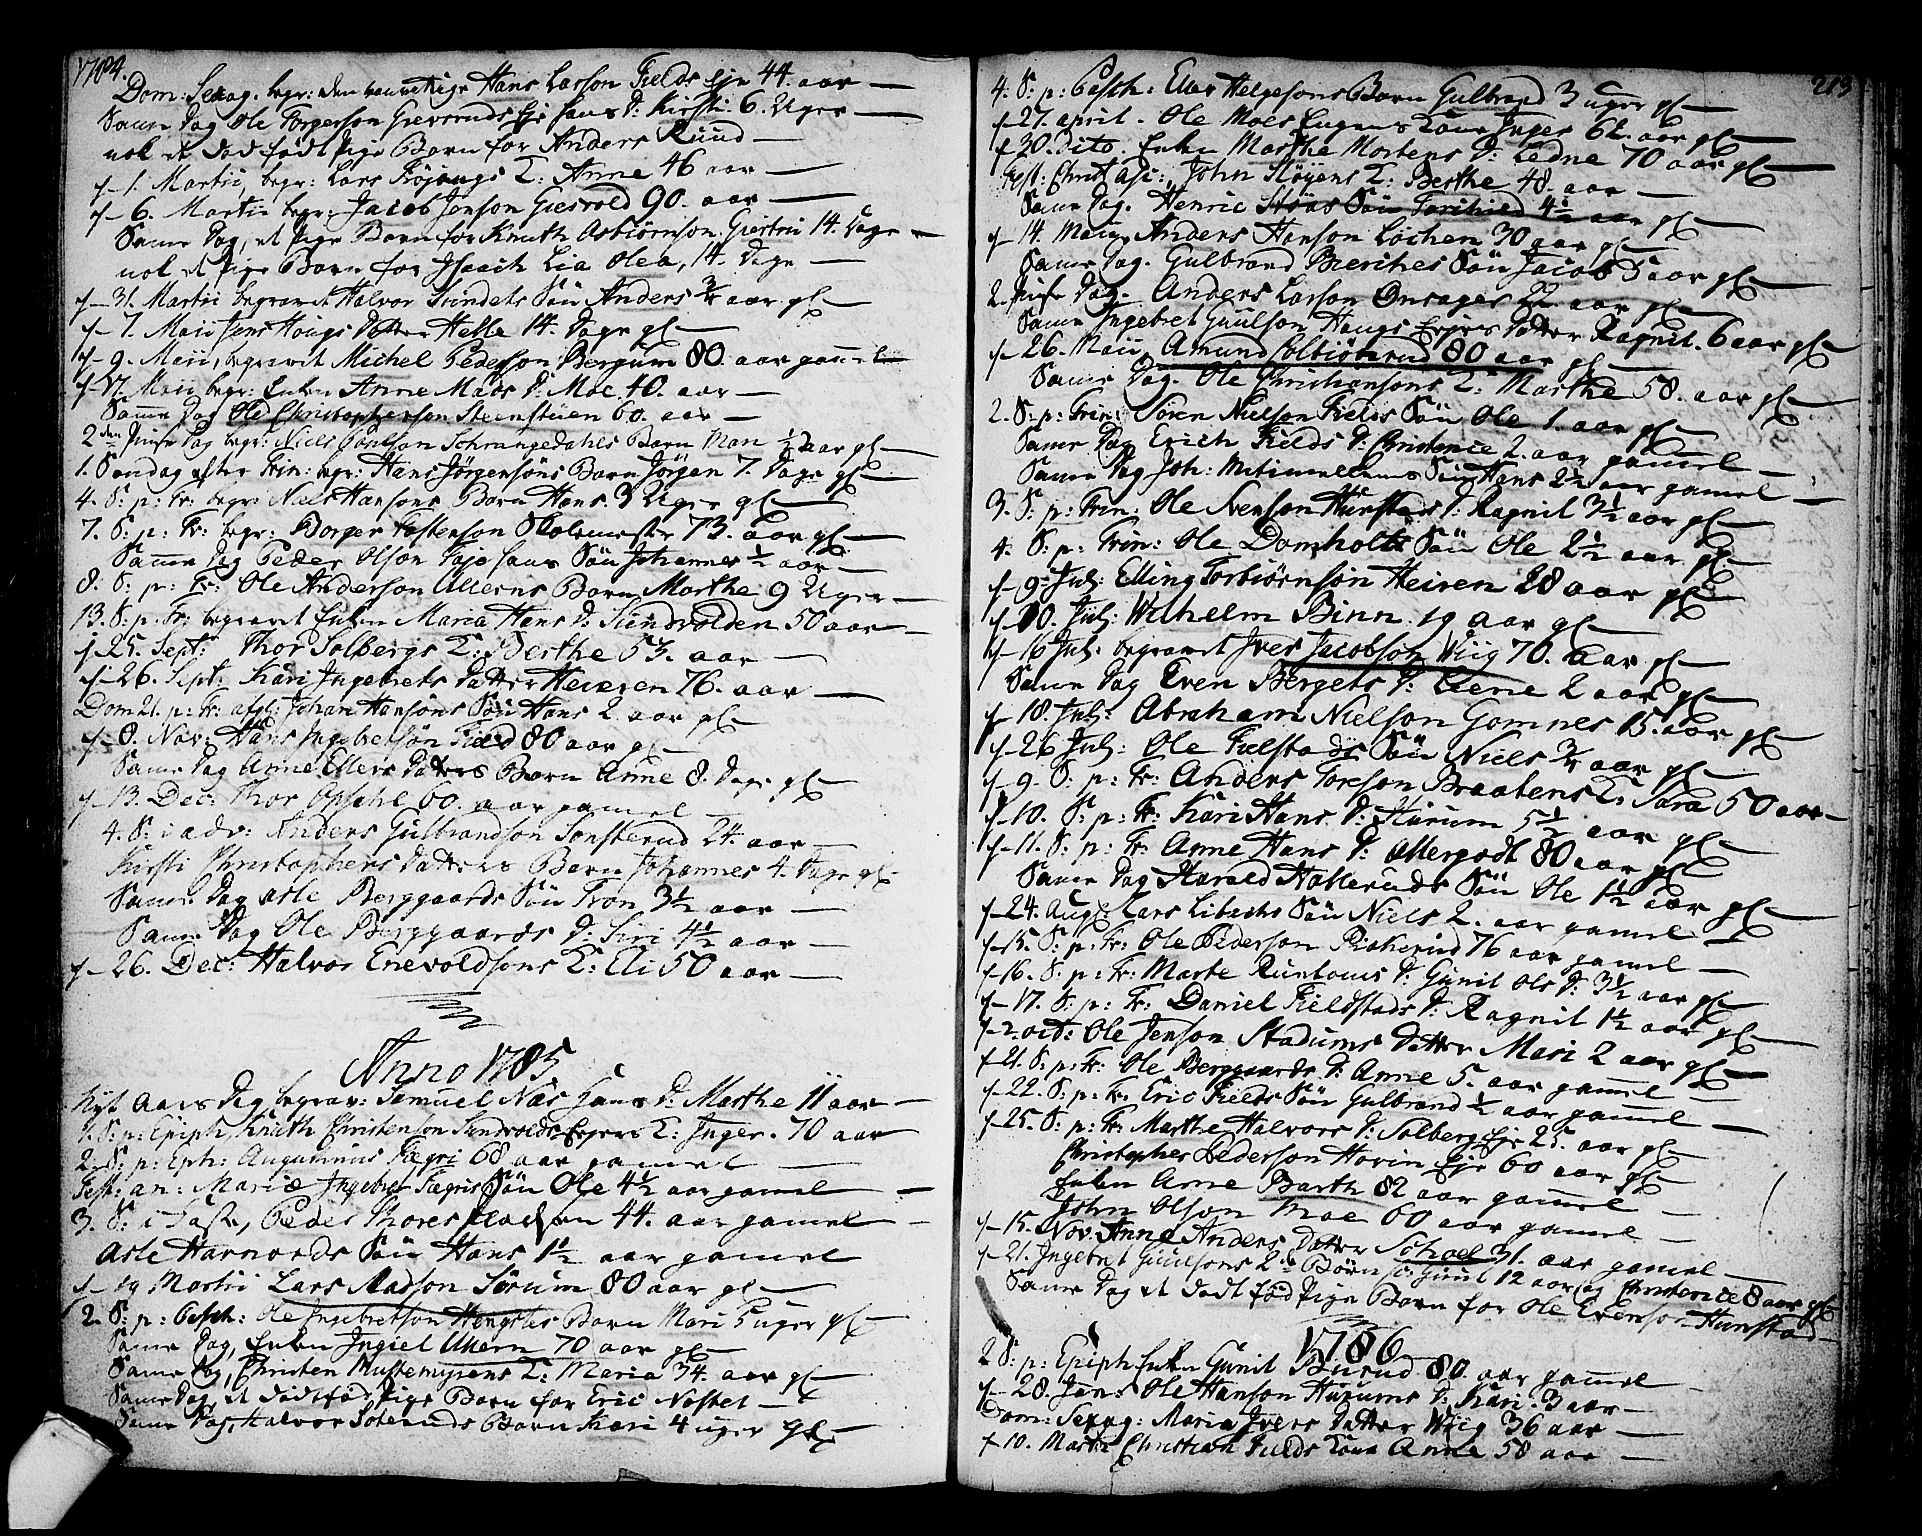 1784.
Dom: Sexag. begr: den vanvittige Hans Larson Fields Eje 44. aar —
Samme Dag Ole Torgerson Gresruds Eje hans D: Kirsti 6. Uger —
nok et død født Pige Barn for Anders Ruud —
d- 1. Martii, begr: Lars Frøjougs K: Anne 46 aar —
d- 6. Martii begr: Jacob Jonson Giesvold 90. aar —
Samme Dag, et Pige Barn for Knuth Asbiørnson 14. Dage —
nok et Pige Barn for Isaach Lia Olea, 14. Dage —
d- 31. Martii begravet Halvor Svindets Søn Anders ¾ aar gl —
d- 7. Maii Jens Hougs Datter Helle 14. Dage gl —
d- 9. Maii, begravet Michel Pederson Bergum 80. aar gammel
d- 17 Maii begr: Enken Anne Mads D: Moe 40. aar —
Samme Dag Ole Christopherson Steenstuen 60. aar —
2den Pinse Dag begr: Niels Poulson Schrangedahls Barn Mari ½ aar gl —
1. Søndag efter Trin: begr: Hans Jørgensøns Barn Jørgen 7. Dage gl —
4. S: p: Tr: begr: Niels Hansons Barn Hans 3 Uger gl —
7. S: p: Tr: begr: Borger Tostenson Skolemester 73. aar gl —
Samme Dag Peder Olson hans Søn Johannes ½ aar —
8. S: p: Tr: Ole Anderson Ullerns Barn Marthe 9 Uger —
13. S: p: Tr: begravet Enken Maria Hans D: Sundvolden 50 aar —
d- 25. Sept: Thor Solbergs K: Berthe 53. aar —
d- 26. Sept: Kari Ingebrets Datter Heieren 76. aar —
Dom 21. p: Tr: Johan Hansøns Søn Hans 2. aar gl —
d- 8. Nov: Hans Ingebretsøn Field 80 aar gl —
Samme Dag Anne Ellers Datters Barn Anne 8. Dage gl —
d- 13. Dec: Thor Opsahl 60. aar gamel —
4. S: i adv: Anders Gulbrandson Sonsterud 24. aar —
Kirsti Christophers Datters Barn Johannes 4. Dage gl
Samme Dag Asle Berggaards Søn Tron 3½ aar —
Samme Dag Ole Berggaards D: Siri 4½ aar —
d- 26. Dec: Halvor Enevoldsons K: Eli 50 aar —
Anno 1785
Nyt Aars Dag begrav: Samuel Næs hans D: Marthe 11 aar —
1. S: p: Epiph, Knuth Christenson Sundvolds Eyes K: Inger. 70 aar
2. S: p: Eph: Augustinus Fægri 68 aar gamel —
Fest: an: Mariæ Ingebret Fægris Søn Ole 4½ aar gamel —
3. S: i Faste, Peder Thores 44. aar gamel —
Asle Harnords Søn Hans 1½ aar gamel
d- 19 Martii Lars Madson Sørum 80 aar gl —
2. S: p: Pasch: Ole Ingebretson Hengsles Barn Mari 5 uger gl —
Samme Dag, Enken Ingiel Ullern 70 aar gl —
Samme Dag, Christen Mustemyrens K: Maria 34. aar gl —
Samme Dag, et dødfødt Pige Barn for Eric Nøsled —
Samme Dag, Halvor Barn Kari 4 uger gl —
213
4. S: p: Pasch: Elias Helgesons Barn Gulbrand 3 uger gl —
d- 27. april. Ole Moes Eugens Kone Inger 62. aar gl —
d- 30. Dito. Enken Marthe Mortens D: Ledne 70 aar gl —
Fest: Christ Asc: John Høyens K: Berthe 48. aar —
Samme Dag. Henric Støas Søn 4½ aar gl —
d- 14. Maii, Anders Hanson Løchen 30 aar gl —
Samme Dag. Gulbrand Søn Jacob 5 aar gl —
2. Pinse Dag. Anders Larson Onsager 22. aar gl —
Samme Ingebret Guulson Hougs Eyes Datter Ragnil. 6 aar gl —
d- 26. Maii, Amund Colbiørnrud 80 aar gl —
Samme Dag. Ole Christiansons K: Marthe 58. aar gl —
2. S: p: Trin: Søren Nielson Fields Søn Ole 1. aar gl —
Samme Dag Erich Fields D: Christence 2. aar gammel —
Samme Dag Joh: Søn Hans 2½ aar gamel —
3. S: p: Trin: Ole Nenson Hunstads D: Ragnil 3½ aar gl —
4. S: p: Trin: Ole Domholts Søn Ole 2½ aar gl —
d- 9- Jul: Elling Torbiørnsøn Heiren 28 aar gl —
d- 10. Jul: Wilhelm Binn 19 aar gl —
d- 16 Jul: begravet Iver Jacobson Wiig 70. aar gl —
Samme Dag Even Bergets D: Lene 2 aar gl —
d- 18. Jul: Abraham Nielson Gomnes 15. aar gl —
d- 26 Jul: Ole Fielstads Søn Niels ¾ aar gl —
d- 9. S: p: Tr: Anders Toreson Braatens K: Sara 50 aar —
d- 10. S: p: Tr: Kari Hans D: Hurum 5½ aar gl —
d- 11. S: p: Tr: Anne Hans D: Allergodt 80 aar gl —
Samme Dag Harald Halleruds Søn Ole 1½ aar gl —
d- 24. Aug: Lars Libachs Søn Niels 2. aar gamel —
d- 15. S: p: Tr: Ole Pederson Piakerud 76 aar gamel —
d- 16. S: p: Tr: Marte Runtoms D: Gunil Ols D: 3½ aar gl —
d- 17. S: p: Tr: Daniel Fieldstads D: Ragnil 1½ aar gl —
d- 2. oct: Ole Jenson Stadums Datter Mari 2 aar gl —
d- 21. S: p: Tr: Ole Berggaards D: Anne 5. aar gamel —
d- 22. S: p: Tr: Eric Fields Søn Gulbrand ½ aar gamel —
d- 25. S: p: Tr: Marthe Halvors D: Solberg Eje 25. aar gl —
Christopher Pederson Hovin Eje 60 aar gl —
Enken Anne Barth 82 aar gammel —
John Olson Moe 60 aar gamel —
d- 15. Nov. Anne Anders Datter Schoel 31. aar gamel —
d- 21. Ingebret Guulsons 2de Børn s: Guul 12 aar og Christence 8 aar gl —
Samme Dag et dødt fød Pige Barn for Ole Evenson Hunstad —
1786
2 S: p: Epiph Enken Gunil Busud 80. aar gammel —
d- 28. Jan: Ole Hanson Hurums D: Kari. 3 aar —
Dom: Sexag: Maria Ivers Datter Wiig 36 aar —
d- 10. Martii Christian Fields Kone Anne 58 aar —